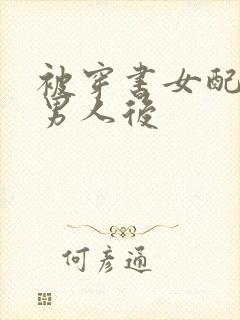 被穿书女配
男人后
何彦通